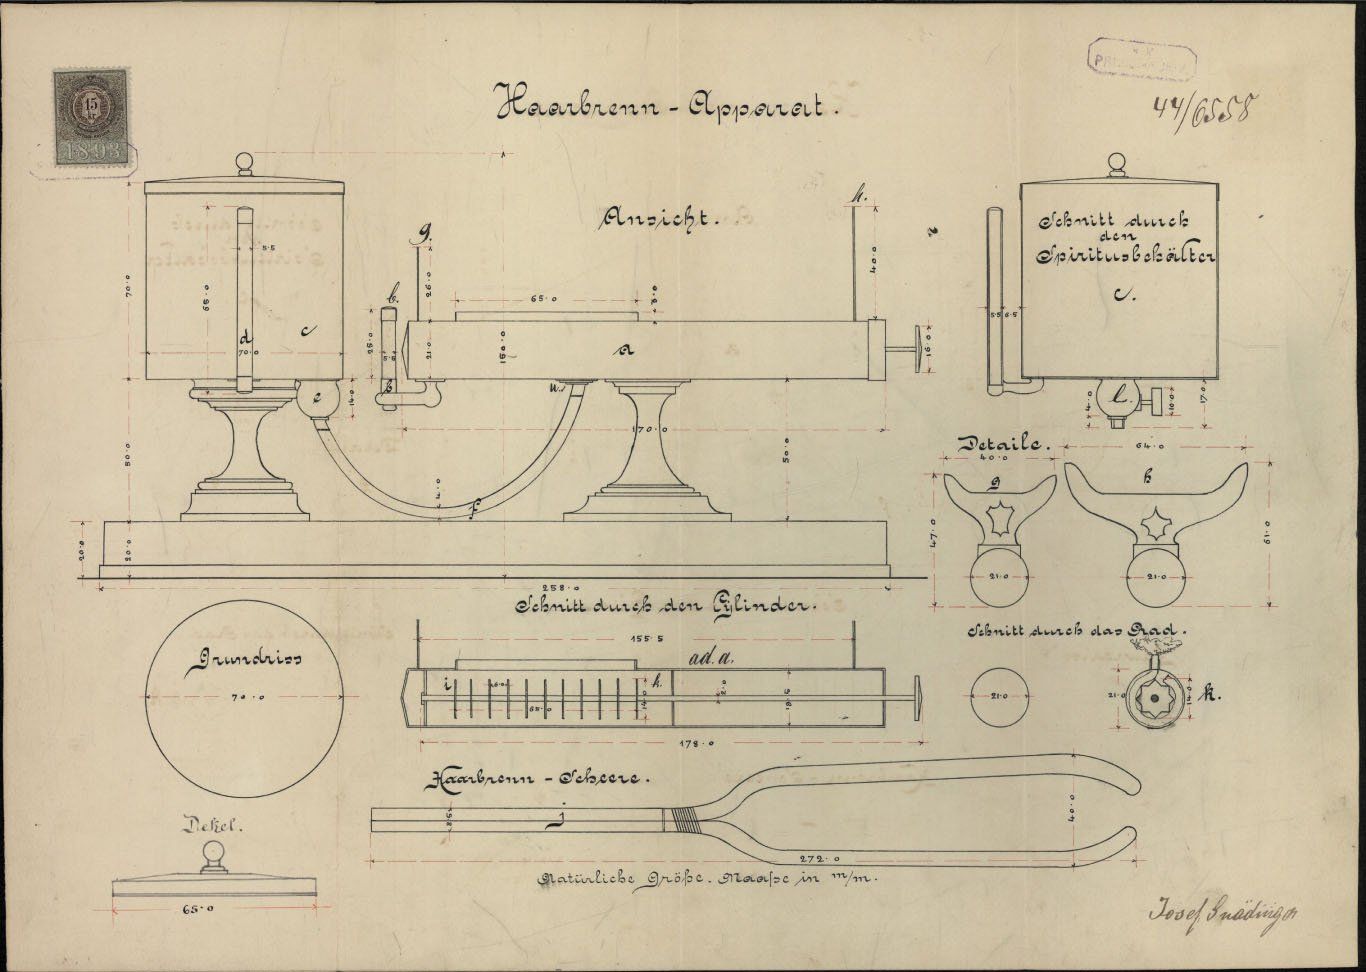 15
kr
1893
44/6558
Haarbrenn - Apparat.
Ansicht.
Schnitt durch
den
Spiritusbehälter
c.
g.
h.
b.
a
d
c
e
b
n.
f
l.
70.0
65.0
5.5
70.0
14.0
80.0
20.0
20.0
258.0
25.0
5.5
26.0
21.0
65.0
3.0
150.0
40.0
16.0
170.0
50.0
4.0
5.5
6.5
4.0
10.0
17.0
Detaile.
40.0
64.0
g
h
47.0
61.0
21.0
21.0
Schnitt durch den Cylinder.
155.5
ad. a.
i
k.
65.0
14.0
2.0
18.5
178.0
Schnitt durch das Rad.
21.0
21.0
14.0
k.
Grundriss
70.0
Haarbrenn - Scheere.
j
40.0
272.0
Natürliche Größe. Maaße in m/m.
Dekel.
65.0
Josef Gnädinger